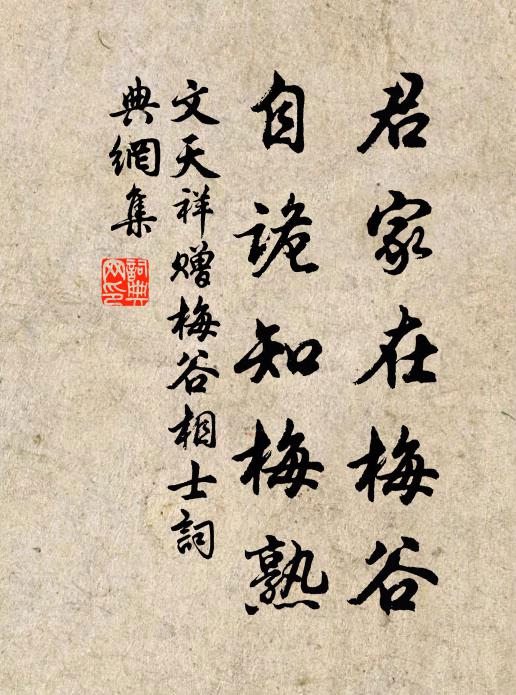 君家在梅谷
自詭知梅熟
文天祥赠梅谷相士詞
典網集
詞典
网印